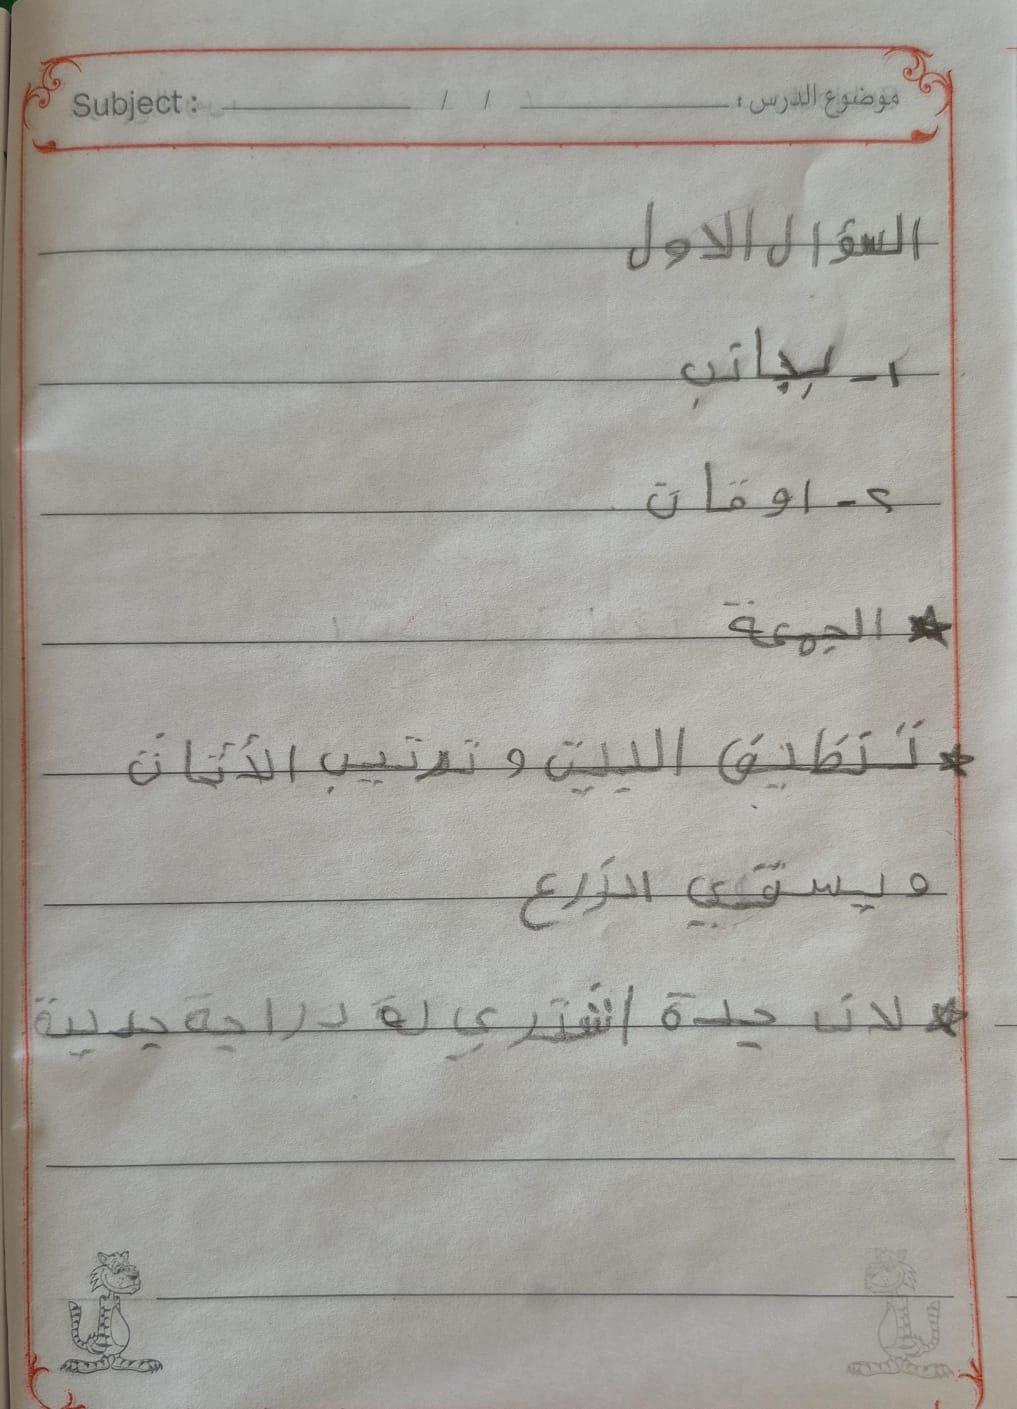 Subject : / / موضوع الدرس :
السؤال الاول
١- بجانب
٢- اوقات
الجمعة
تنظيف البيت و ترتيب الأثاث
و يسقي الزرع
لان جدة اشتري لة دراجة جديدة